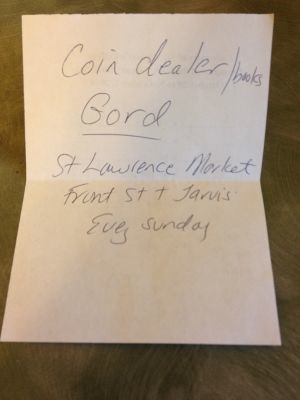 Coin dealer/books
Gord
St Lawrence Market
Front St + Jarvis.
Evey Sunday